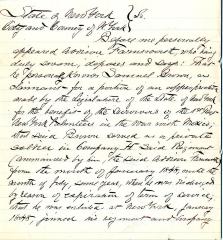 State of New York
City and County of N York } Ss.
Before me personally
appeared
duly sworn, deposes and says: That
he knows Samuel Brown, as
claimant for a portion of an appropriation
made by the Legislature of the State of New York
for the benefit of the survivors of the 1st Regt
New York Volunteers in the War with Mexico,
that said Brown served as a private
soldier in Company H said Regiment
Commanded by him, the said
from the month of January until the
month of July same year, when he was discharged
by reason of expiration of term of service,
that he was enlisted at New York, January
joined his regiment and company